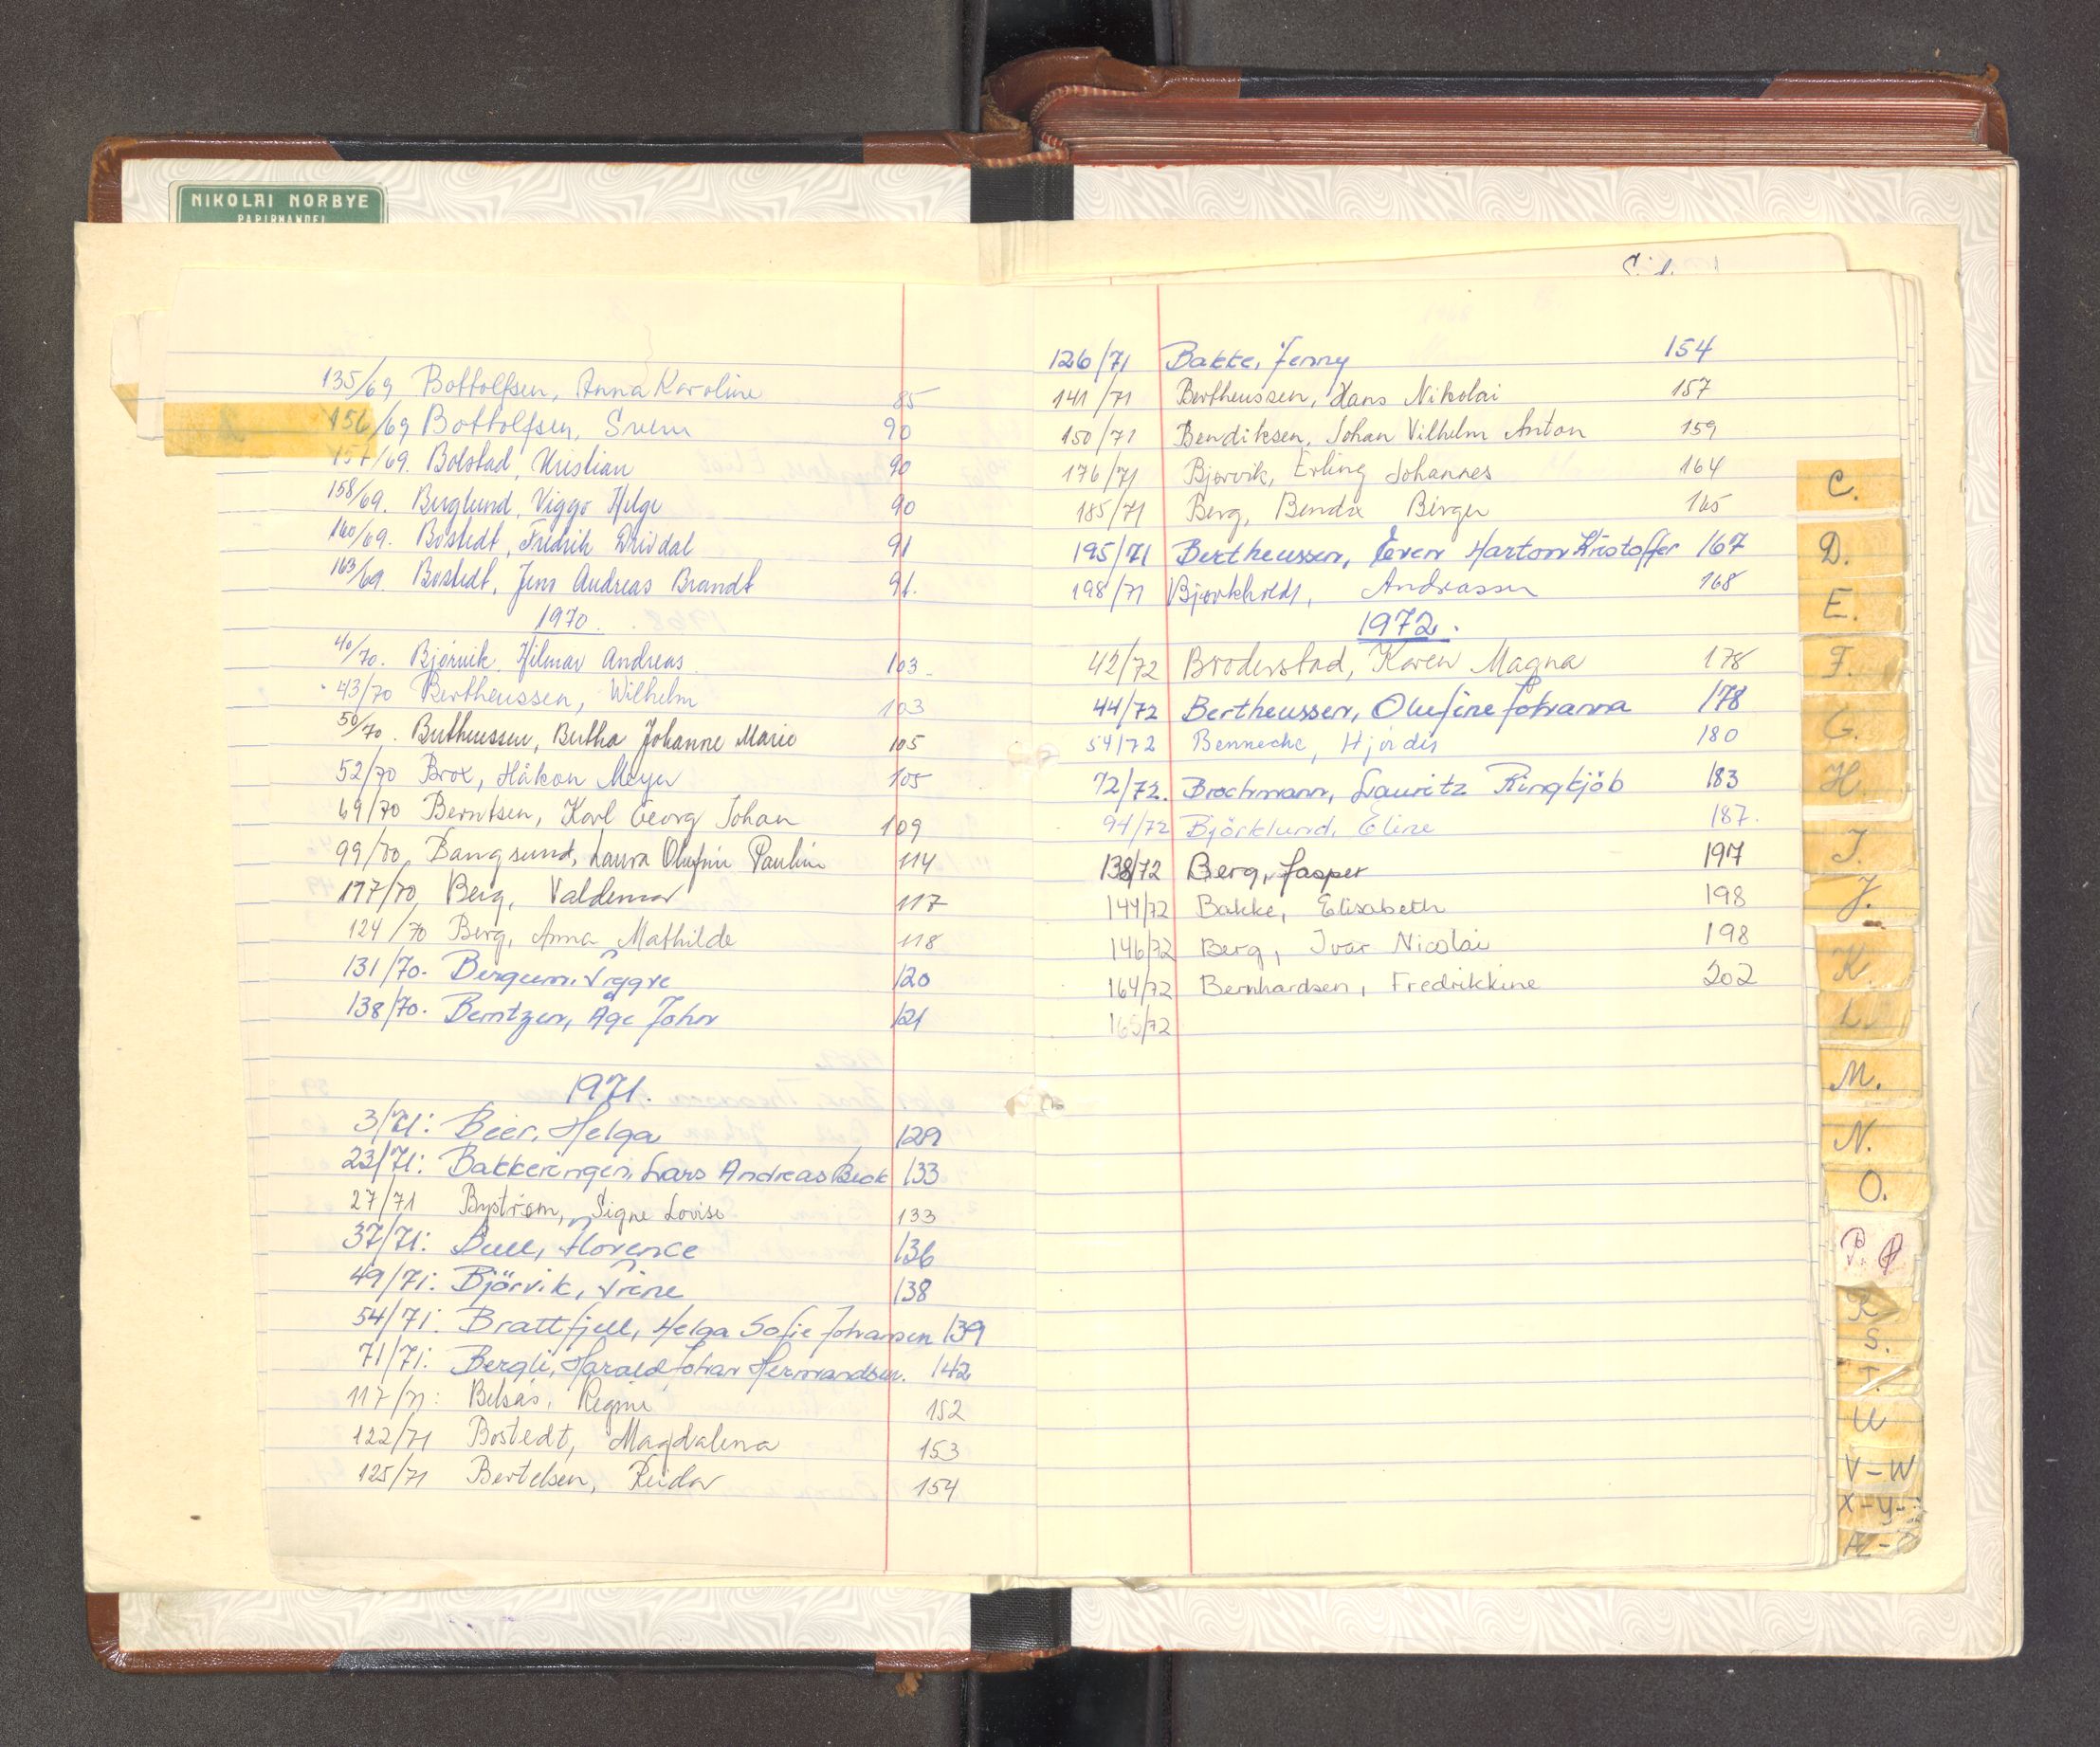 NIKOLAI NORBYE
PAPIRHANDEL
135/69 Bottolfsen, Anna Karoline 85
156/69 Bottolfsen, 90
157/69. Bolstad, Kristian 90
158/69. Berglund, Viggo Helge 90
160/69. Bostedt, Fredrik Drivdal 91
163/69. Bostedt, Jens Andreas Brandt 91.
1970.
40/70. Bjørvik, Hilmar Andreas 103
43/70 Bertheussen, Wilhelm 103
50/70. Bertheussen, Bertha Johanne Marie 105
52/70 Brox, Håkon Meyer 105
69/70 Berntsen, Karl Georg Johan 109
99/70 Bangsund, Laura Olufine Pauline 114
117/70 Berg, Valdemar 117
124/70 Berg, Anna Mathilde 118
131/70. Bergum, Trygve 120
138/70. Berntzen, Åge John 121
1971.
3/71: Beer, Helga 129
23/71: Bakkeringen, Lars Andreas Beck 133
27/71 Byström, Signe Lovise 133
37/71: Bull, Florence 136
49/71: Björvik, Trine 138
54/71: Brattfjell, Helga Sofie Johansen 139
71/71: Bergli, Harald Johan Hermandsen. 142
117/71: Belsås, Regine 152
122/71 Bostedt, Magdalena 153
125/71 Bertelsen, Reidar 154
126/71 Bakke, Jenny 154
141/71 Bertheussen, Hans Nikolai 157
150/71 Bendiksen, Johan Vilhelm Anton 159
176/71 Bjørvik, Erling Johannes 164
185/71 Berg, Bendix Birger 165
195/71 Bertheussen, Even Kristoffer 167
198/71 Bjørkholdt, 168
1972.
42/72 Broderstad, Karen Magna 178
44/72 Bertheussen, Olufine Johanna 178
54/72 Benneche, Hjördis 180
72/72. Brochmann, Lauritz Ringkjöb 183
94/72 Björklund, Eline 187.
138/72 Berg, Jasper 197
144/72 Bakke, Elisabeth 198
146/72 Berg, Ivar Nicolai 198
164/72 Bernhardsen, Fredrikkine 202
165/72
C.
D.
E.
F.
G.
H.
I.
J.
K.
L.
M.
N.
O.
P.Q
R
S.
T.
U
V-W
X-Y-